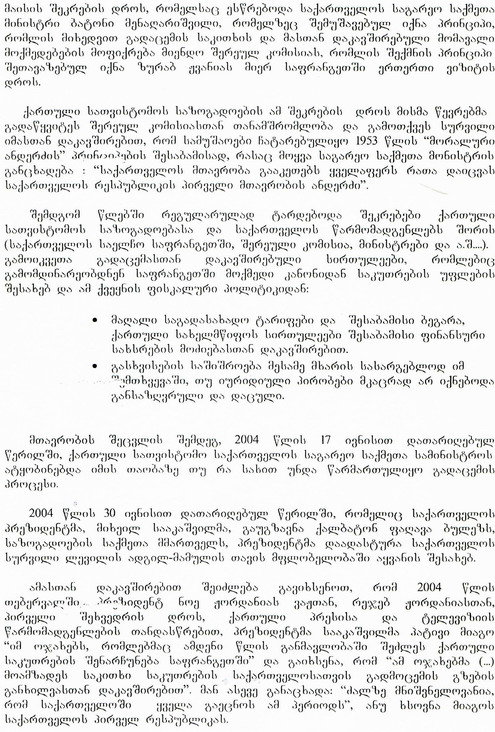 მაისის შეკრების დროს, რომელსაც ესწრებოდა საქართველოს საგარეო საქმეთა
მინისტრი ბატონი მენაღარიშვილი, რომელზეც შემუშავებულ იქნა პრინციპი,
რომლის მიხედვით გადაცემის საკითხის და მასთან დაკავშირებული მომავალი
მოქმედებების მოფიქრება მიენდო შერეულ კომისიას, რომლის შექმნის პრინციპი
შეთავაზებულ იქნა ზურაბ ჟვანიას მიერ საფრანგეთში ერთერთი ვიზიტის
დროს.
ქართული სათვისტომოს საზოგადოების ამ შეკრების დროს მისმა წევრებმა
გადაწყვიტეს შერეულ კომისიასთან თანამშრომლობა და გამოთქვეს სურვილი
იმასთან დაკავშირებით, რომ სამუშაოები ჩატარებულიყო 1953 წლის “მორალური
ანდერძის” პრინციპების შესაბამისად, რასაც მოყვა საგარეო საქმეთა მონისტრის
განცხადება : “საქართველოს მთავრობა გააკეთებს ყველაფერს რათა დაიცვას
საქართველოს რესპუბლიკის პირველი მთავრობის ანდერძი”.
შემდგომ წლებში რეგულარულად ტარდებოდა შეკრებები ქართული
სათვისტომოს საზოგადოებასა და საქართველოს წარმომადგენლებს შორის
(საქართველოს საელჩო საფრანგეთში, შერეული კომისია, მინისტრები და ა.შ....).
გამოიკვეთა გადაცემასთან დაკავშირებული სირთულეები, რომლებიც
გამომდინარეობდნენ საფრანგეთში მოქმედი კანონიდან საკუთრების უფლების
შესახებ და ამ ქვეყნის ფისკალური პოლიტიკიდან:
• მაღალი საგადასახადო ტარიფები და შესაბამისი ბეგარა,
ქართული სახელმწიფოს სირთულეები შესაბამისი ფინანსური
სახსრების მოძიებასთან დაკავშირებით.
• გასხვისების საშიშროება მესამე მხარის სასარგებლოდ იმ
შემთხვევაში, თუ იურიდიული პირობები მკაცრად არ იქნებოდა
განსაზღვრული და დაცული.
მთავრობის შეცვლის შემდეგ, 2004 წლის 17 ივნისით დათარიღებულ
წერილში, ქართული სათვისტომო საქართველოს საგარეო საქმეთა სამინისტროს
ატყობინებდა იმის თაობაზე თუ რა სახით უნდა წარმართულიყო გადაცემის
პროცესი.
2004 წლის 30 ივნისით დათარიღებულ წერილში, რომელიც საქართველოს
პრეზიდენტმა, მიხეილ სააკაშვილმა, გაუგზავნა ქალბატონ ფაღავა ბულეზს,
საზოგადოების საქმეთა მმართველს, პრეზიდენტმა დაადასტურა საქართველოს
სურვილი ლევილის ადგილ-მამულის თავის მფლობელობაში აყვანის შესახებ.
ამასთან დაკავშირებით შეიძლება გავიხსენოთ, რომ 2004 წლის
თებერვალში პრეზიდენტ ნოე ჟორდანიას ვაჟთან, რეჯებ ჟორდანიასთან,
პირველი შეხვედრის დროს, ქართული პრესისა და ტელევიზიის
წარმომადგენლების თანდასწრებით, პრეზიდენტმა სააკაშვილმა პატივი მიაგო
“იმ ოჯახებს, რომლებმაც ამდენი წლის განმავლობაში შეძლეს ქართული
საკუთრების შენარჩუნება საფრანგეთში” და გაიხსენა, რომ “ამ ოჯახებმა (...)
მოამზადეს საკითხი საკუთრების საქართველოსათვის გადმოცემის გზების
განხილვასთან დაკავშირებით”. მან ასევე განაცხადა: “ძალზე მნიშვნელოვანია,
რომ საქართველოში ყველა გაეცნოს ამ პერიოდს”, ანუ ხსოვნა მიაგოს
საქართველოს პირველ რესპუბლიკას.